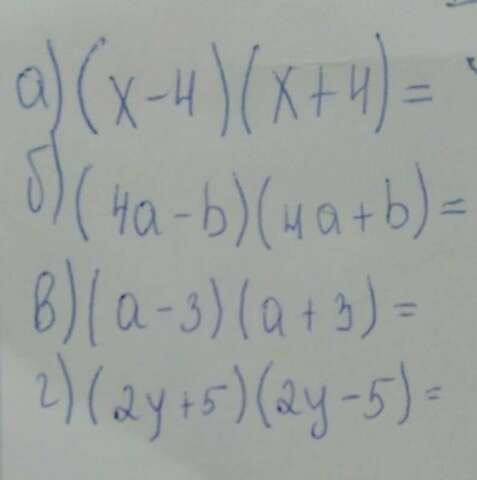 а) (x-4)(x+4)=
б) (4a-b)(4a+b)=
в) (a-3)(a+3)=
г) (2y+5)(2y-5)=